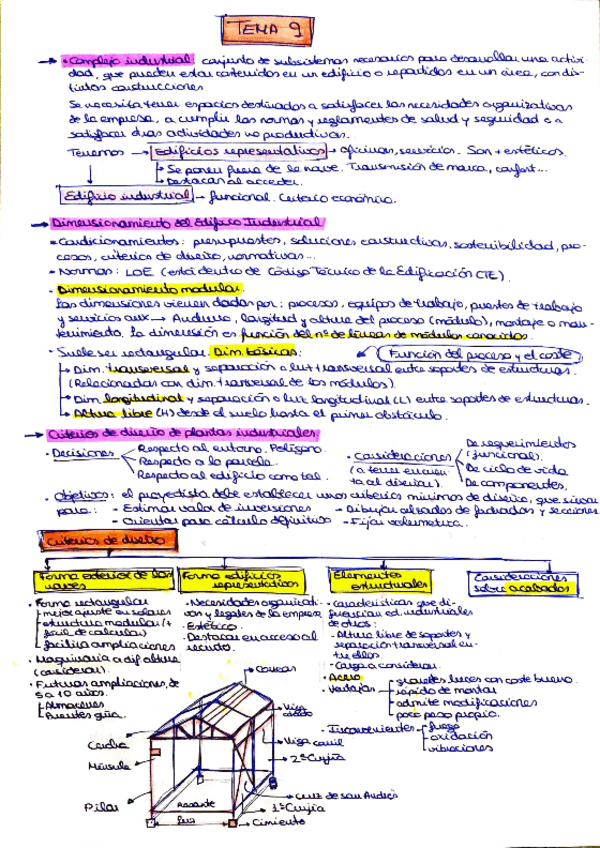 TEMA 9
→ • Complejo industrial: conjunto de subsistemas necesarios para desarrollar una activi-
dad, que pueden estar contenidos en un edificio o repartidos en un área, con dis-
tintas construcciones.
Se necesita tener espacios destinados a satisfacer las necesidades organizativas
de la empresa, a cumplir las normas y reglamentos de salud y seguridad o a
satisfacer otras actividades no productivas.
Tenemos → Edificios representativos → oficinas, servicios. Son + estéticos.
→ Se ponen fuera de la nave. Transmisión de marca, confort...
→ Destacar al acceder.
Edificio industrial → funcional. Criterio económico.
→ Dimensionamiento del Edificio Industrial
• Condicionamientos: presupuestos, soluciones constructivas, sostenibilidad, pro-
cesos, criterios de diseño, normativas...
• Normas: LOE (está dentro de Código Técnico de la Edificación CTE).
• Dimensionamiento modular.
Las dimensiones vienen dadas por: procesos, equipos de trabajo, puestos de trabajo
y servicios aux → Anchura, longitud y altura del proceso (módulo), montaje o man-
tenimiento. La dimensión es función del nº de líneas de módulos conocidos.
• Suele ser rectangular. Dim. básicas: Función del proceso y el coste
→ Dim. transversal y separación o luz transversal entre soportes de estructuras.
(Relacionadas con dim. transversal de los módulos).
→ Dim. longitudinal y separación o luz longitudinal (L) entre soportes de estructuras.
→ Altura libre (H) desde el suelo hasta el primer obstáculo.
→ Criterios de diseño de plantas industriales
• Decisiones
Respecto al entorno. Polígono.
Respecto a la parcela.
Respecto al edificio como tal.
• Consideraciones
(a tener en cuen-
ta al diseñar).
De requerimientos
(funcional).
De ciclo de vida
De componentes.
• Objetivos: el proyectista debe establecer unos criterios mínimos de diseño, que sirvan
para: - Estimar valor de inversiones - Dibujar alzados de fachadas y secciones
- Orientar para cálculo definitivo - Fijar volumetría.
Criterios de diseño
Forma exterior de las
naves
• Forma rectangular
mejor ajuste en solares
estructura modular (+
fácil de calcular)
facilita ampliaciones
• Maquinaria a dif altura
(considerar).
• Futuras ampliaciones, de
5 a 10 años.
Almacenes
Puentes grúa.
Forma edificios
representativos
• Necesidades organizati-
vas y legales de la empresa
• Estético.
• Destacar en acceso al
recinto.
Elementos
estructurales
• Características que di-
ferencian ed. industriales
de otros:
- Altura libre de soportes y
separación transversal en-
tre ellos.
- Carga a considerar.
• Acero
• Ventajas
grandes luces con coste bueno.
rápido de montar
admite modificaciones
poco peso propio.
• Inconvenientes
fuego
oxidación
vibraciones
Consideraciones
sobre acabados
Correas
Viga
Viga carril
2ª Crujía
Cercha
Ménsula
Pilar
Rasante
luz
Cruz de san Andrés
1ª Crujía
Cimiento